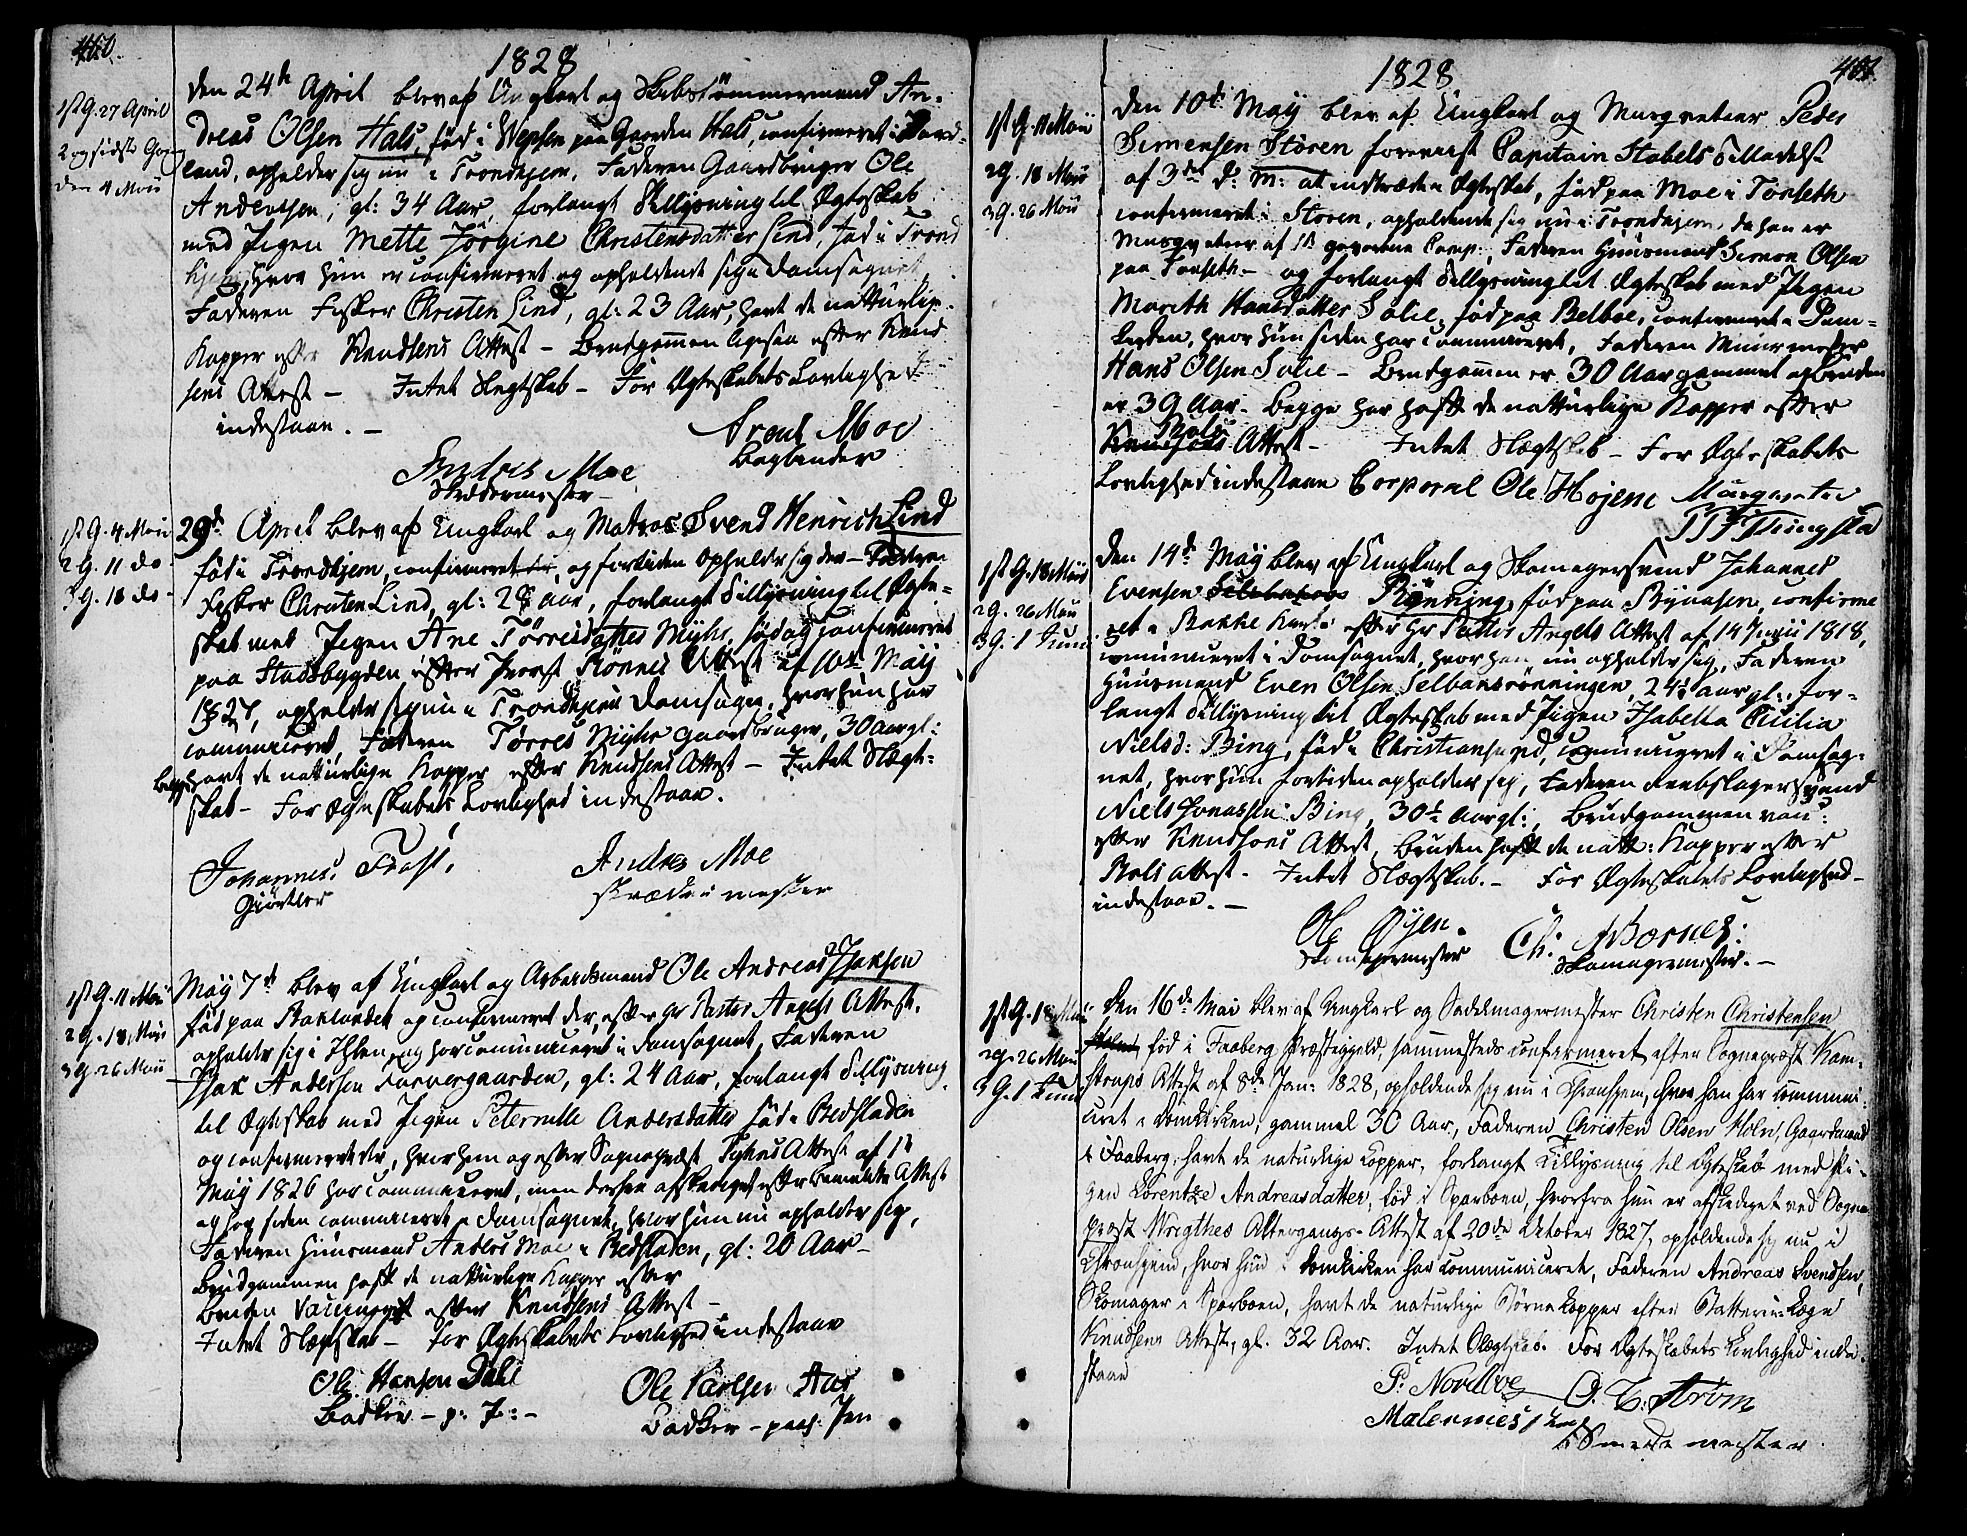 460.
1828
1ste G. 27 April
2 og sidste Gang
den 4 Maii
den 24de April blev af Ungkarl og Skibstømmermand An-
dreas Olsen Hals, fød i Vepsen paa Gaarden Hals, confirmeret i
land, opholder sig nu i Trondhjem, Faderen Gaardbruger Ole
Anderssen, gl: 34 Aar, forlangt Tillysning til Ægteskab
med Pigen Mette Jørgine Christensdatter Lind, fød i Trond
hjem, hvor hun er confirmeret og opholdende sig i Domsognet,
Faderen Fisker Christen Lind, gl: 23 Aar, havt de naturlige
Kopper efter Knudsens Attest – Brudgommen ligesaa efter Knud
sens Attest – Intet Slegtskab – For Ægteskabets Lovlighed
indestaae. –
Arent Moe
Bogbinder
Andreas Moe
Skrædermester –
1ste G. 4 Maii
2 G. 11 do
3 G. 18 do –
29de April blev af Ungkarl og Matros Svend Henrich Lind
fød i Trondhjem, confirmeret, og fortiden opholder sig der – Faderen
Fisker Christen Lind, gl: 28 Aar, forlangt Tillysning til Ægte-
skab med Pigen Ane Tørresdatter Myhr, fød og confirmeret
paa Stadsbygden efter Provst Rønnes Attest af 10de May
1827, opholder sig nu i Trondhjems Domsogn, hvor hun har
communiceret, Faderen Tørres Myhr Gaardbruger, 30 Aar gl:
Begge havt de naturlige Kopper efter Knudsens Attest – Intet Slægt-
skab – For Ægteskabets Lovlighed indestaae.
Johannes Frost,
Giørtler
Andreas Moe
skrædermester
1ste G. 11 Maii
2 G. 18 Maii
3 G. 26 Maii
May 7de blev af Ungkarl og Arbeidsmand Ole Andreas Isaksen
fød paa Baklandet og confirmeret der, efter Hr Pastor Angels Attest,
opholder sig i Ihlen, og har communiceret i Domsognet, Faderen
Isak Andersen Farvergaarden, gl: 24 Aar, forlangt Tillysning
til Ægteskab med Pigen Peternelle Andersdatter fød i Bedstaden
og confirmeret der, hvor hun og efter Sognepræst Attest af 1ste
May 1826 har communiceret, men derfra afskediget efter bemeldte Attest
og har siden communiceret i Domsognet, hvor hun nu opholder sig,
Faderen Huusmand Anders Moe i Bedstaden, gl: 20 Aar –
Brudgommen havt de naturlige Kopper efter
Bruden Vaccineret efter Knudsens Attest –
Intet Slægtskab – For Ægteskabets Lovlighed indestaae
Ole Hansen Dahl
– p: P: –
Ole Carlsen Aas
– paah: Pen
1828
461.
1ste G. 11 Maii
2 G. 18 Maii
3 G. 26 Maii
Den 10de May blev af Ungkarl og Musqveteer Peder
Simensen Støren foreviist Capitain Stabels Tilladelse
af 3de d: M: at indtræde i Ægteskab, fød paa Moe i Tonseth
confirmeret i Støren, opholdende sig nu i Trondhjem, da han er
Musqveteer af 1ste Comp:, Faderen Huusmand Simon Olsen
paa Tonseth – og forlangt Tillysning til Ægteskab med Pigen
Marith Hansdatter Solie, fød paa Belboe, confirmeret i Dom-
kirken, hvor hun siden har communiceret, Faderen Muurmester
Hans Olsen Solie – Brudgommen er 30 Aar gammel og Bruden
er 39 Aar – begge har havt de naturlige Kopper efter
Bolis Attest – Intet Slægtskab – For Ægteskabets
Lovlighed indestaae Corporal Ole Hojem Musqveteer
Thingstad
1ste G. 18 Maii
2 G. 26 Maii
3 G. 1 Juni
Den 14de May blev af Ungkarl og Skomagersvend Johannes
Evensen Rønning, fød paa Byneset, confirme
ret i Bakke Kirke efter Hr Pastor Angels Attest af 14 Junii 1818,
communiceret i Domsognet, hvor han nu opholder sig, Faderen
Huusmand Even Olsen Selbarsrønningen, 24½ Aar gl:, for-
langt Tillysning til Ægteskab med Pigen Isabella Cicilia
Nielsd: Bing, fød i Christiansund, communiceret i Domsog-
net, hvor hun fortiden opholder sig, Faderen Reebslagersvend
Niels Jonassen Bing, 30½ Aar gl:, Brudgommen vac:
efter Knudsens Attest, Bruden havt de natt: Kopper efter
Bolis Attest – Intet Slægtskab. – For Ægteskabets Lovlighed –
indestaae. –
Ole Øyen.
Skomagermester
Ch: Børnes:
Skomagermester. –
1ste G. 18 Maii
2 G. 26 Maii
3 G. 1 Juni
Den 16de Mai blev af Ungkarl og Sadelmagermester Christen Christensen
fød i Faaberg Præstegjeld, sammesteds confirmeret efter Sognepræst Kam-
strups Attest af 8de Jan: 1828, opholdende sig nu i Thronhjem, hvor han har communi-
ceret i Domkirken, gammel 30 Aar, Faderen Christen Olsen Holn, Gaardmand
i Faaberg, havt de naturlige Kopper, forlangt Tillysning til Ægteskab med Pi-
gen Lorentze Andreasdatter, fød i Sparboen, hvorfra hun er afskediget ved Sogne-
præst Wrigthes Altergangs-Attest af 20de October 1827, opholdende sig nu i
Thronhjem, hvor hun i Domkirken har communiceret, Faderen Andreas Svendsen,
Skomager i Sparboen, havt de naturlige Børnekopper efter Batterie-Læge
Knudsens Attest, gl. 32 Aar. Intet Slægtskab. For Ægteskabets Lovlighed inde-
staae
P: Nordboe
Malermester
O. C. Strøm
Smedemester